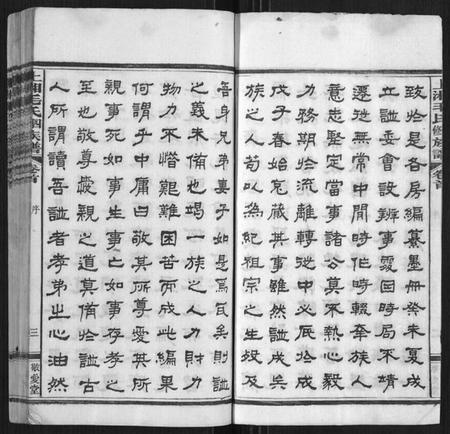 致於是各房編纂墨冊癸未夏成
立譜委會設辨事處因時局不靖
遷徙無常中間時作時輟幸族人
意志堅定當事諸公莫不熱心毅
力務期於流離轉徙中必厎於成
戊子春始克蕆其事雖然譜成矣
族之人苟以為紀祖宗之生歿及
吾身兄弟妻子如是焉爾矣則譜
之義未備也竭一族之人力財力
物力不惜艱難困苦而成此編果
何謂乎中庸曰敬其所尊愛其所
親事死如事生事亡如事存孝之
至也敬尊愛親之道莫備於譜古
人所謂讀吾譜者孝弟之心油然
上湘毛氏族譜 卷首 序 三 敬愛堂